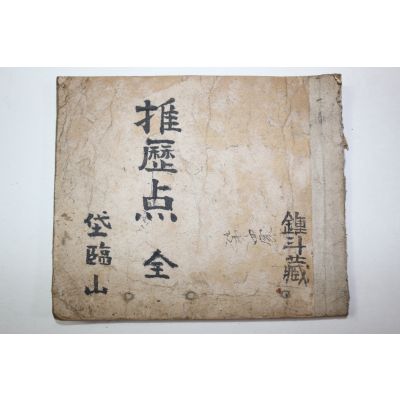 鍾斗藏
推歷点 全
垈臨山